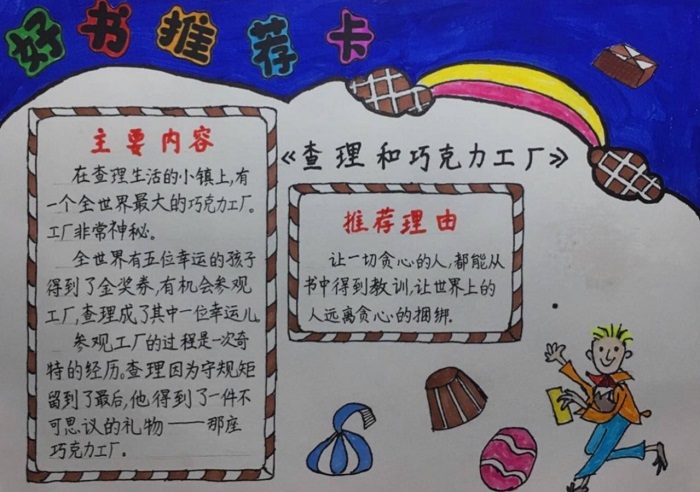 好书推荐卡
《查理和巧克力工厂》
主要内容
在查理生活的小镇上,有
一个全世界最大的巧克力工厂。
工厂非常神秘。
全世界有五位幸运的孩子
得到了金奖券,有机会参观
工厂,查理成了其中一位幸运儿。
参观工厂的过程是一次奇
特的经历。查理因为守规矩
留到了最后,他得到了一件不
可思议的礼物——那座
巧克力工厂。
推荐理由
让一切贪心的人,都能从
书中得到教训,让世界上的
人远离贪心的捆绑。